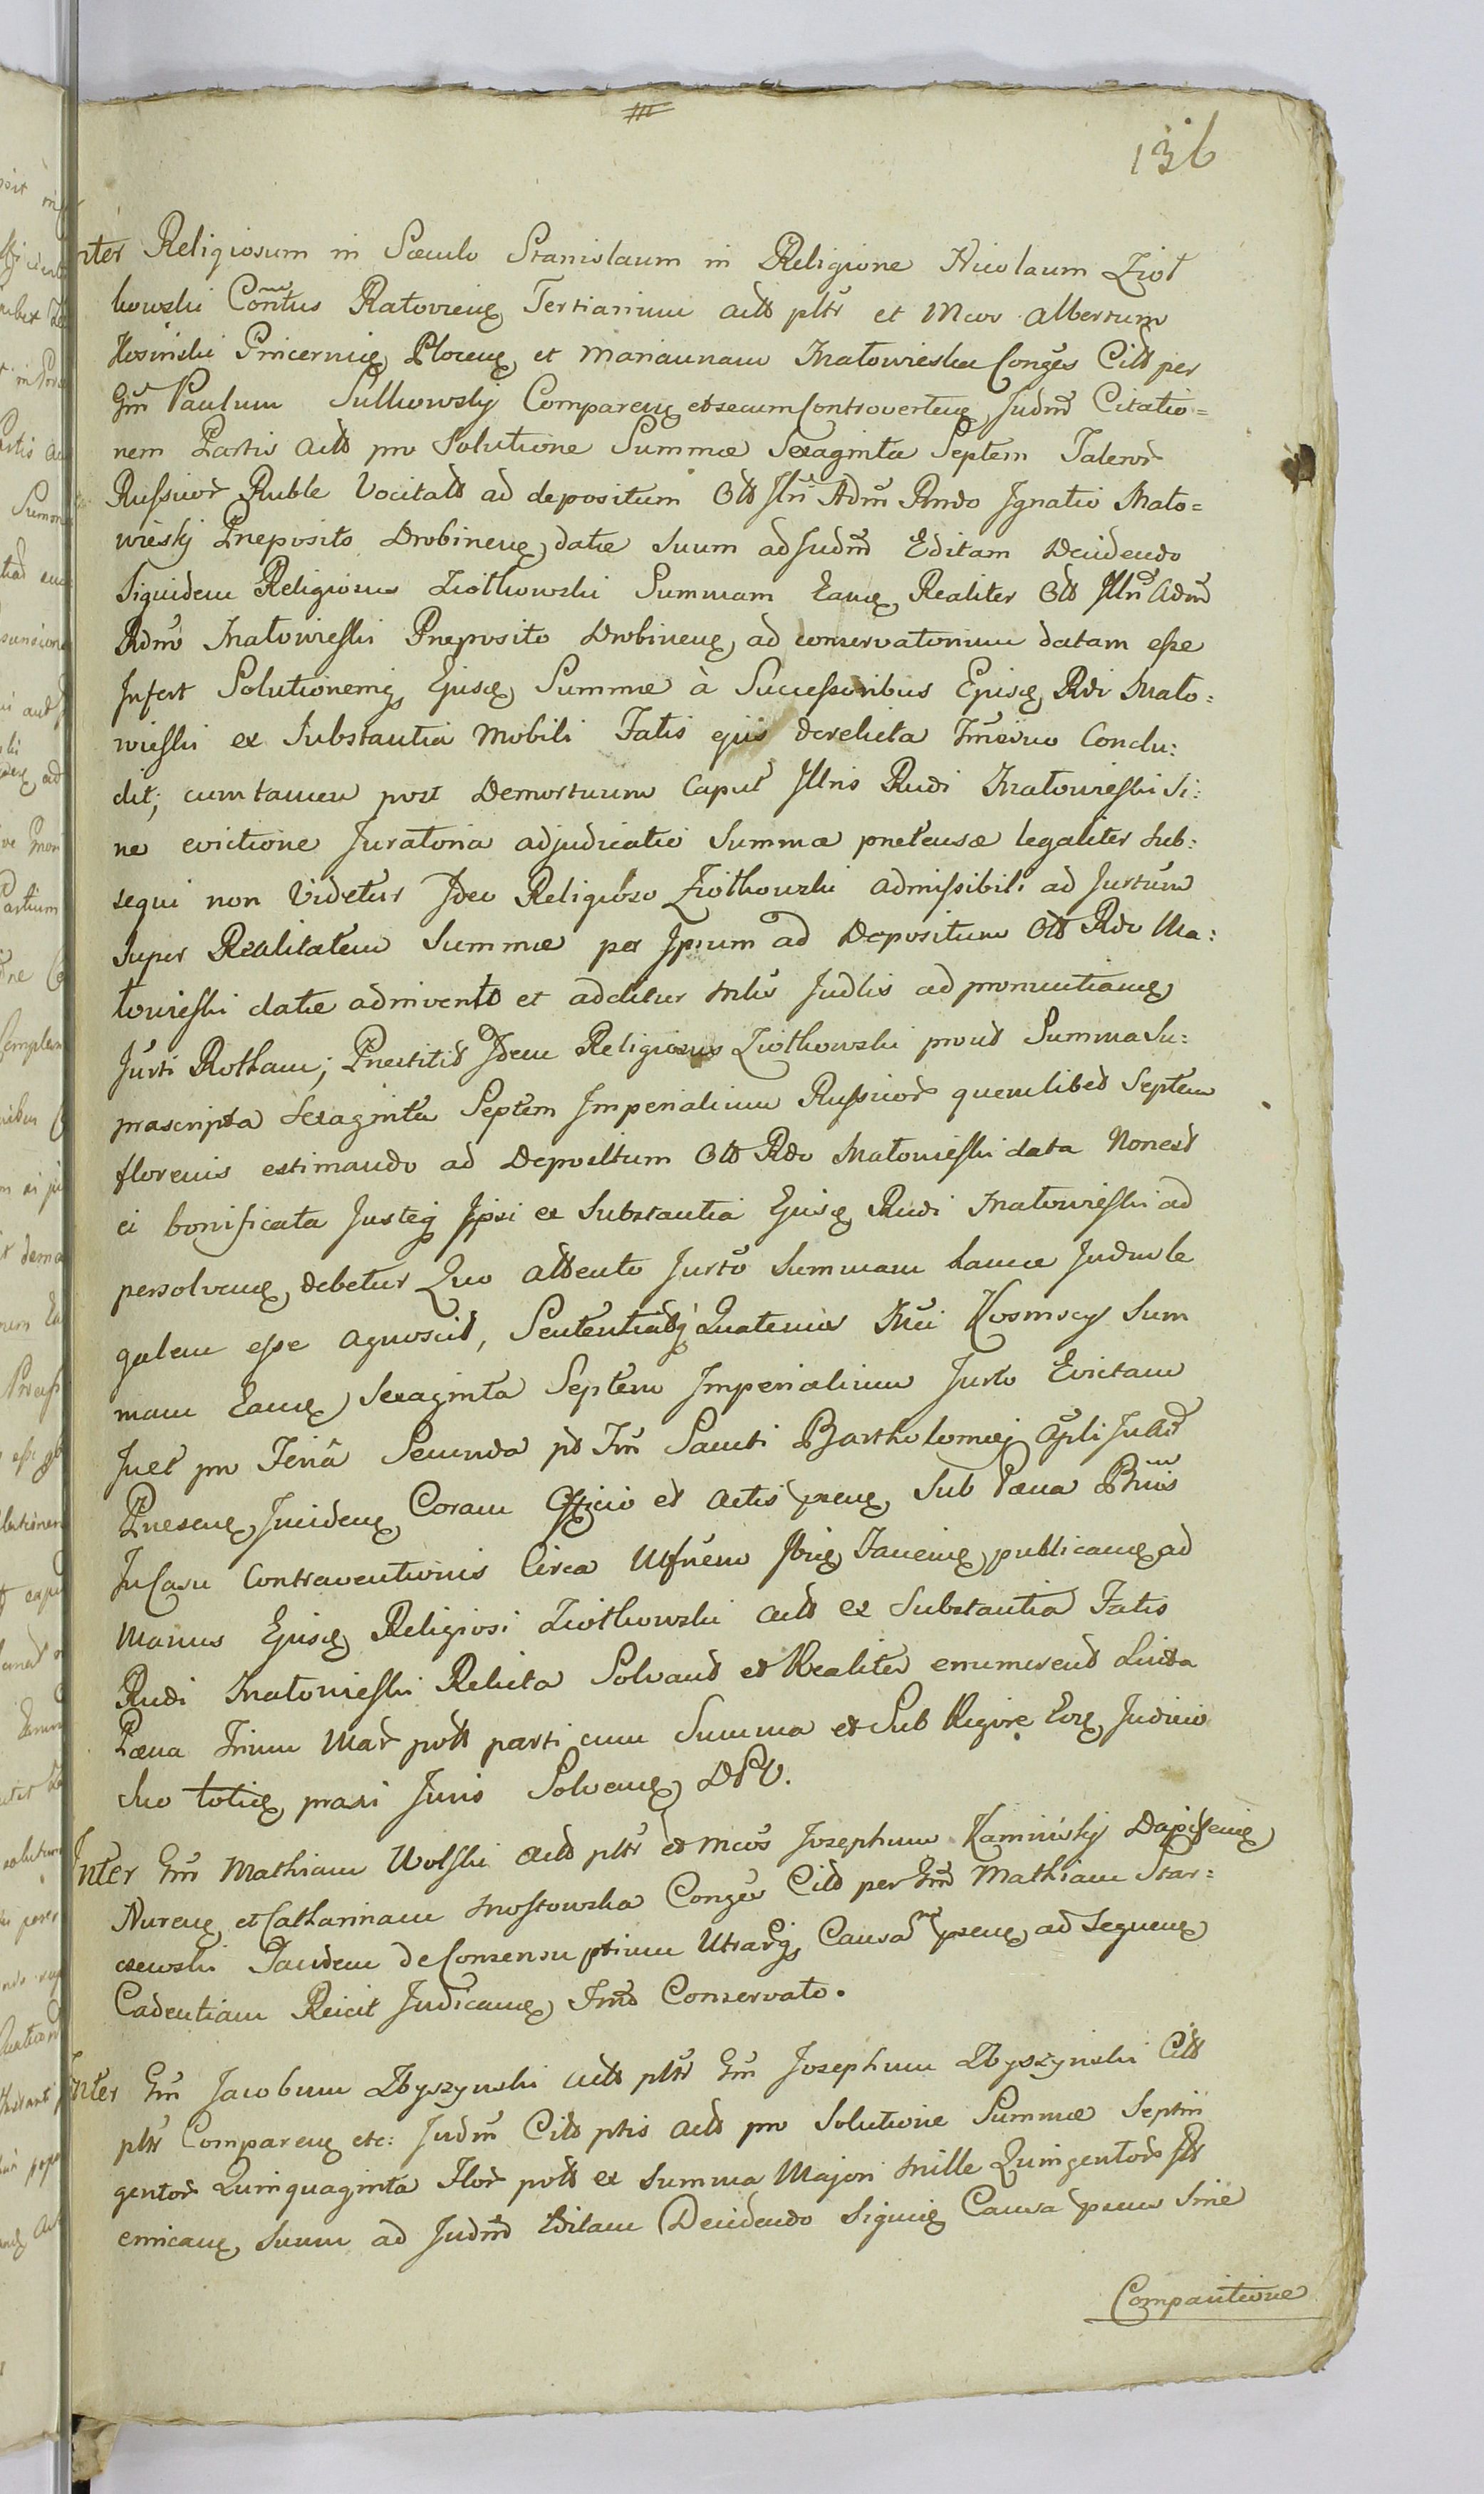 136
Inter Religiosum in Sæculo Stanislaum in Religione Nicolaum Ziot
kowski Contus Ratovien Tertiarium actt pltr et Mcos Albertum
Kosinski Pincernię Plocen et Mariannam Małowieska Conges Citt per
Gm Paulum Sulkowsky Comparen et secum Controverten Judm Citatio=
nem Partis actt pro Solutione Summæ Sexaginta Septem Taleror
Russicor Ruble Vocitatt ad depositum Ott Illri Adm Rndo Ignatio Mało=
wiesky Præposito Drobinen datæ Suum ad Judm Editam Decidendo
Siquidem Religiosus Ziotkowski Summam Eand Realiter Ott Illri Adm
Rdmo Małowieski Præposito Drobinen ad conservatorium datam esse
Infert Solutionemq Ejusd Summæ à Successoribus Ejusd Rdi Mało=
wieski ex Substantia Mobili Fatis ejus derelicta Conclu:
dit; cum tamen post Demortuum Caput Illris Rndi Małowieski Si:
ne evictione Juratoria adjudicatio Summæ prætensæ legaliter sub:
sequi non Videtur Ideo Religioso Ziotkowski admissibili ad Jurtum
Super Realitatem Summæ per Ipsum ad Depositum Ott Rdo Ma:
łowieski datæ adinvento et additur Mlis Judlis ad pronuntiand
Jurti Rotham; Præstitit Idem Religiosus Ziotkowski prout Summa Su:
prascripta Sexaginta Septem Imperialium Russicor quemlibet Septem
florenis estimando ad Depositum Ott Rdo Małowieski data Non est
ei bonificata Justeq Ipsi ex Substantia Ejusd Rndi Małowieski ad
persolvend debetur Quo attento Jurto Summam hance Judm le
galem esse agnoscit, Sententiatq Quatenus Mci Kosinscy Sum
mam Eand Sexaginta Septem Imperialium Jurto Evictam
Juet pro Feria Secunda pt Fm Sancti Bartholomæi Apli Judm
Præsens Inciden Coram Officio et Actis psen Sub Pæna Bnis
In Casu Contraventionis Circa publicand ad
Manus Ejusd Religiosi Ziotkowski actt ex Substantia Fatis
Rndi Małowieski Relicta Solvant et Realiter enumerent Luita
Pæna Trium Mar poll parti cum Summa et Sub Rigore Eod Judicio
Suo toties praxi Juris Solvend DPV.
Inter Gm Mathiam Wolski actt pltr et Mcos Josephum Kaminsky Dapiferię
Nuren et Catharinam Mostowska Conges Citt per Gm Mathiam Star=
czewski Tandem de Consensu ptium Utrarq Causam psen ad Sequen
Cadentiam Reicit Judicand Tmo Conservato.
Inter Gm Jacobum Zbyszynski actt pltr Gm Josephum Zbyszynski Citt
pltr Comparen etc: Judm Citt ptis actt pro Solutione Summæ Septin
gentor Quinquaginta Flor poll ex Summa Majori Mille Quingentor fl
emican Suum ad Judm Editam Decidendo Causa Sine
Comparitione